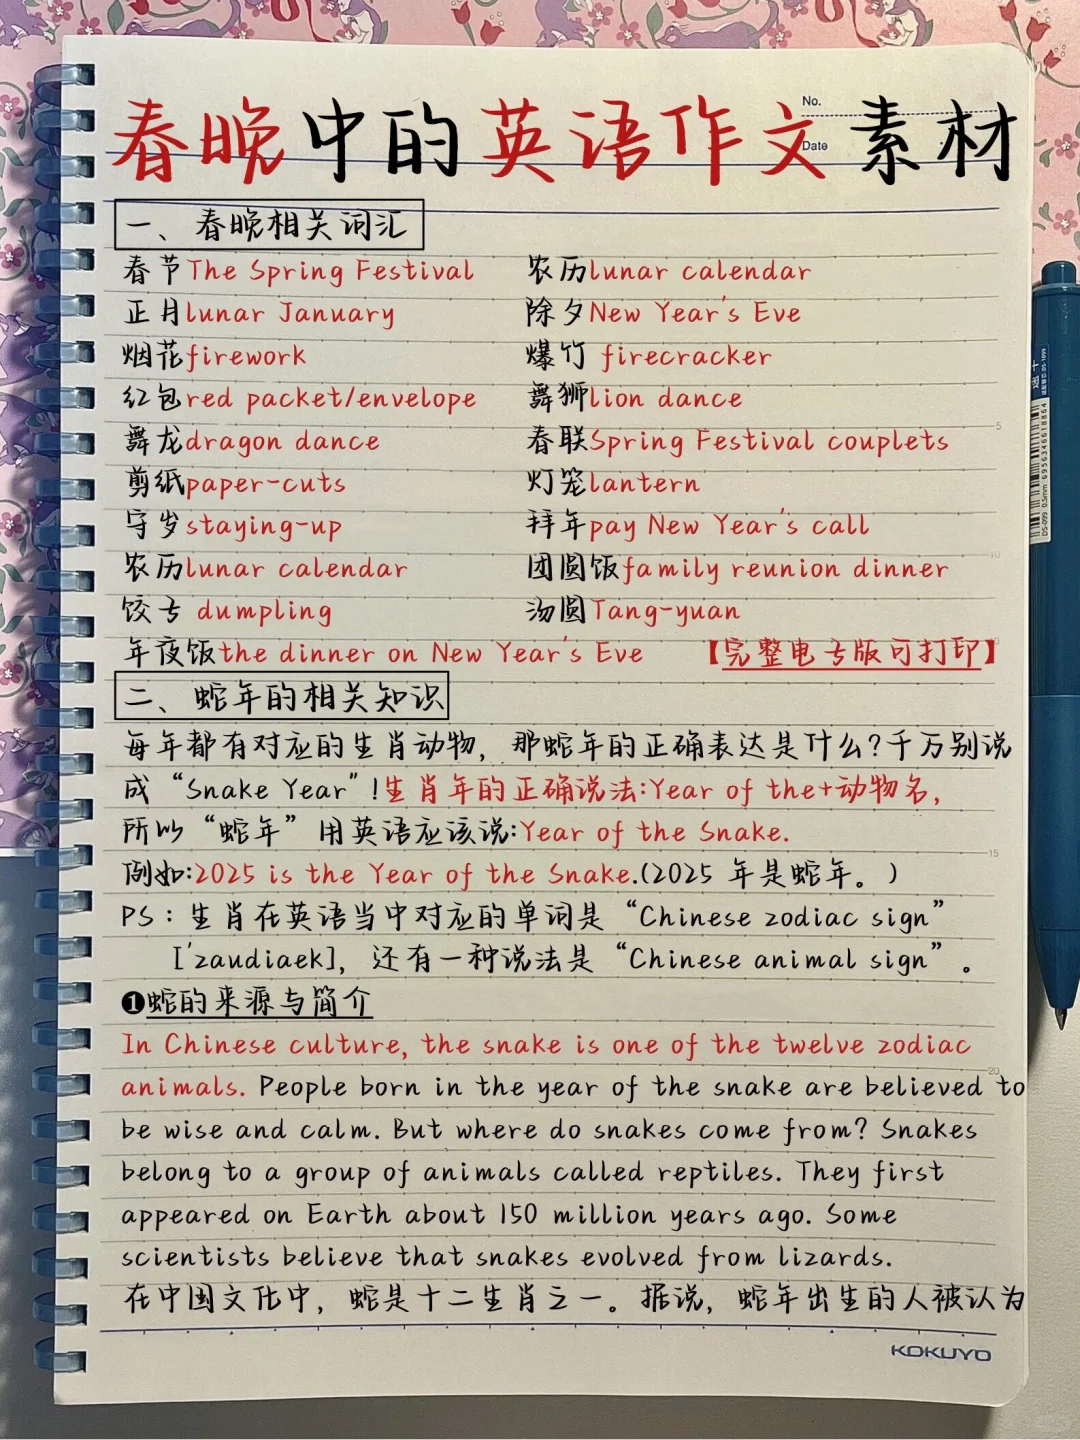 No.
Date
春晚中的英语作文素材
一、春晚相关词汇
春节The Spring Festival 农历lunar calendar
正月lunar January 除夕New Year's Eve
烟花firework 爆竹 firecracker
红包red packet/envelope 舞狮lion dance
舞龙dragon dance 春联Spring Festival couplets
剪纸paper-cuts 灯笼lantern
守岁staying-up 拜年pay New Year's call
农历lunar calendar 团圆饭family reunion dinner
饺子 dumpling 汤圆Tang-yuan
年夜饭the dinner on New Year's Eve 【完整电子版可打印】
二、蛇年的相关知识
每年都有对应的生肖动物，那蛇年的正确表达是什么?千万别说
成“Snake Year”!生肖年的正确说法:Year of the+动物名，
所以“蛇年”用英语应该说:Year of the Snake.
例如:2025 is the Year of the Snake.(2025 年是蛇年。)
PS：生肖在英语当中对应的单词是“Chinese zodiac sign”
['zaudiaek]，还有一种说法是“Chinese animal sign”。
❶蛇的来源与简介
In Chinese culture, the snake is one of the twelve zodiac
animals. People born in the year of the snake are believed to
be wise and calm. But where do snakes come from? Snakes
belong to a group of animals called reptiles. They first
appeared on Earth about 150 million years ago. Some
scientists believe that snakes evolved from lizards.
在中国文化中，蛇是十二生肖之一。据说，蛇年出生的人被认为
KOKUYO
5
10
15
20
DS-099 0.5mm 6956346618864